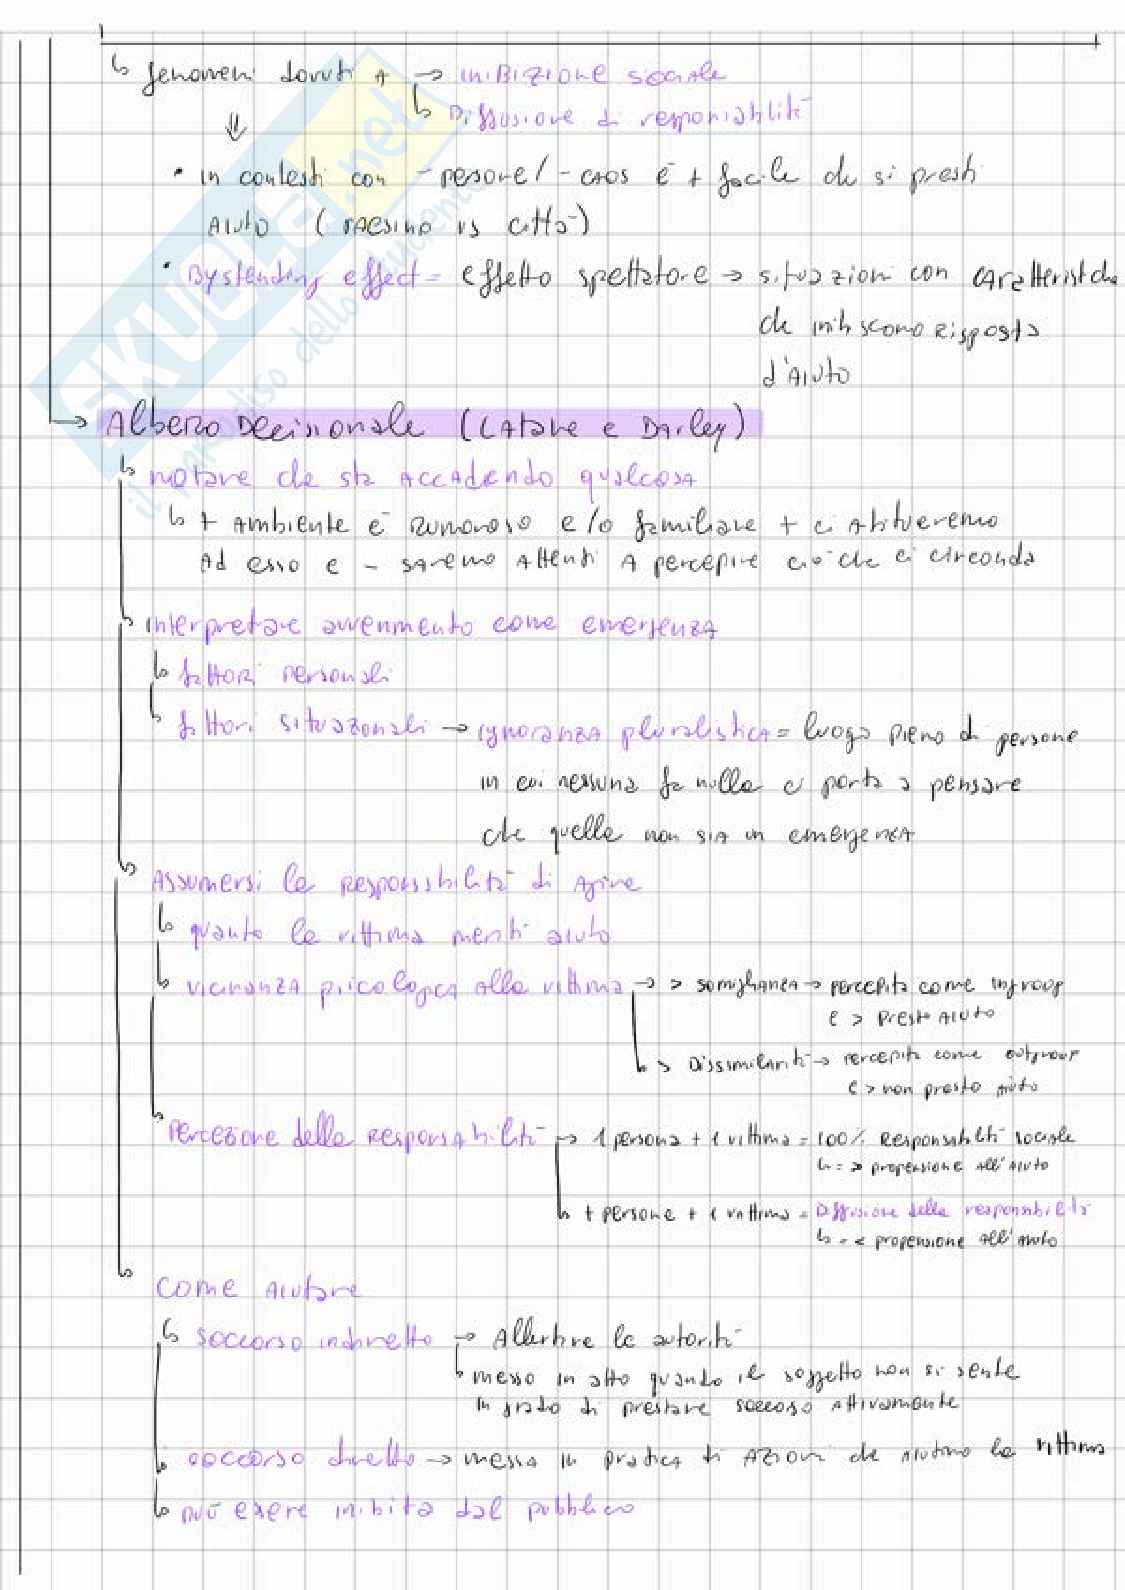 fenomeni dovuti a → inibizione sociale
Diffusione di responsabilità
• in contesti con - persone / - caos è + facile che si presti
aiuto (paesino vs città)
• Bystanding effect = effetto spettatore → situazioni con caratteristiche
che inibiscono risposta
d'aiuto
Albero Decisionale (Latane e Darley)
notare che sta accadendo qualcosa
+ ambiente è rumoroso e/o familiare + ci abitueremo
ad esso e - saremo attenti a percepire ciò che ci circonda
interpretare avvenimento come emergenza
fattori personali
fattori situazionali → ignoranza pluralistica = luogo pieno di persone
in cui nessuna fa nulla ci porta a pensare
che quella non sia un emergenza
Assumersi la responsabilità di agire
quanto la vittima meriti aiuto
vicinanza psicologica alla vittima → > somiglianza → percepita come ingroup
e > presto aiuto
> Dissimilarità → percepita come outgroup
e > non presto aiuto
percezione della responsabilità → 1 persona + 1 vittima = 100% responsabilità sociale
= > propensione all'aiuto
+ persone + 1 vittima = Diffusione della responsabilità
= < propensione all'aiuto
come aiutare
soccorso indiretto → Allertare le autorità
messo in atto quando il soggetto non si sente
in grado di prestare soccorso attivamente
soccorso diretto → messa in pratica di azioni che aiutino la vittima
può essere inibita dal pubblico
SKUOLA.net
il paradiso dello studente